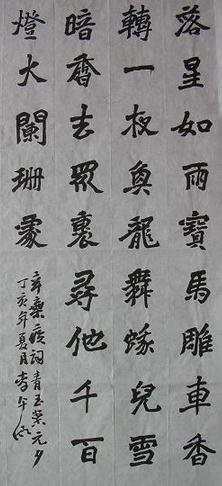 落星如雨寶馬雕車香
轉一夜魚龍舞蛾兒雪
暗香去眾裏尋他千百
燈火闌珊處
辛棄疾詞青玉案元夕
丁亥年夏月